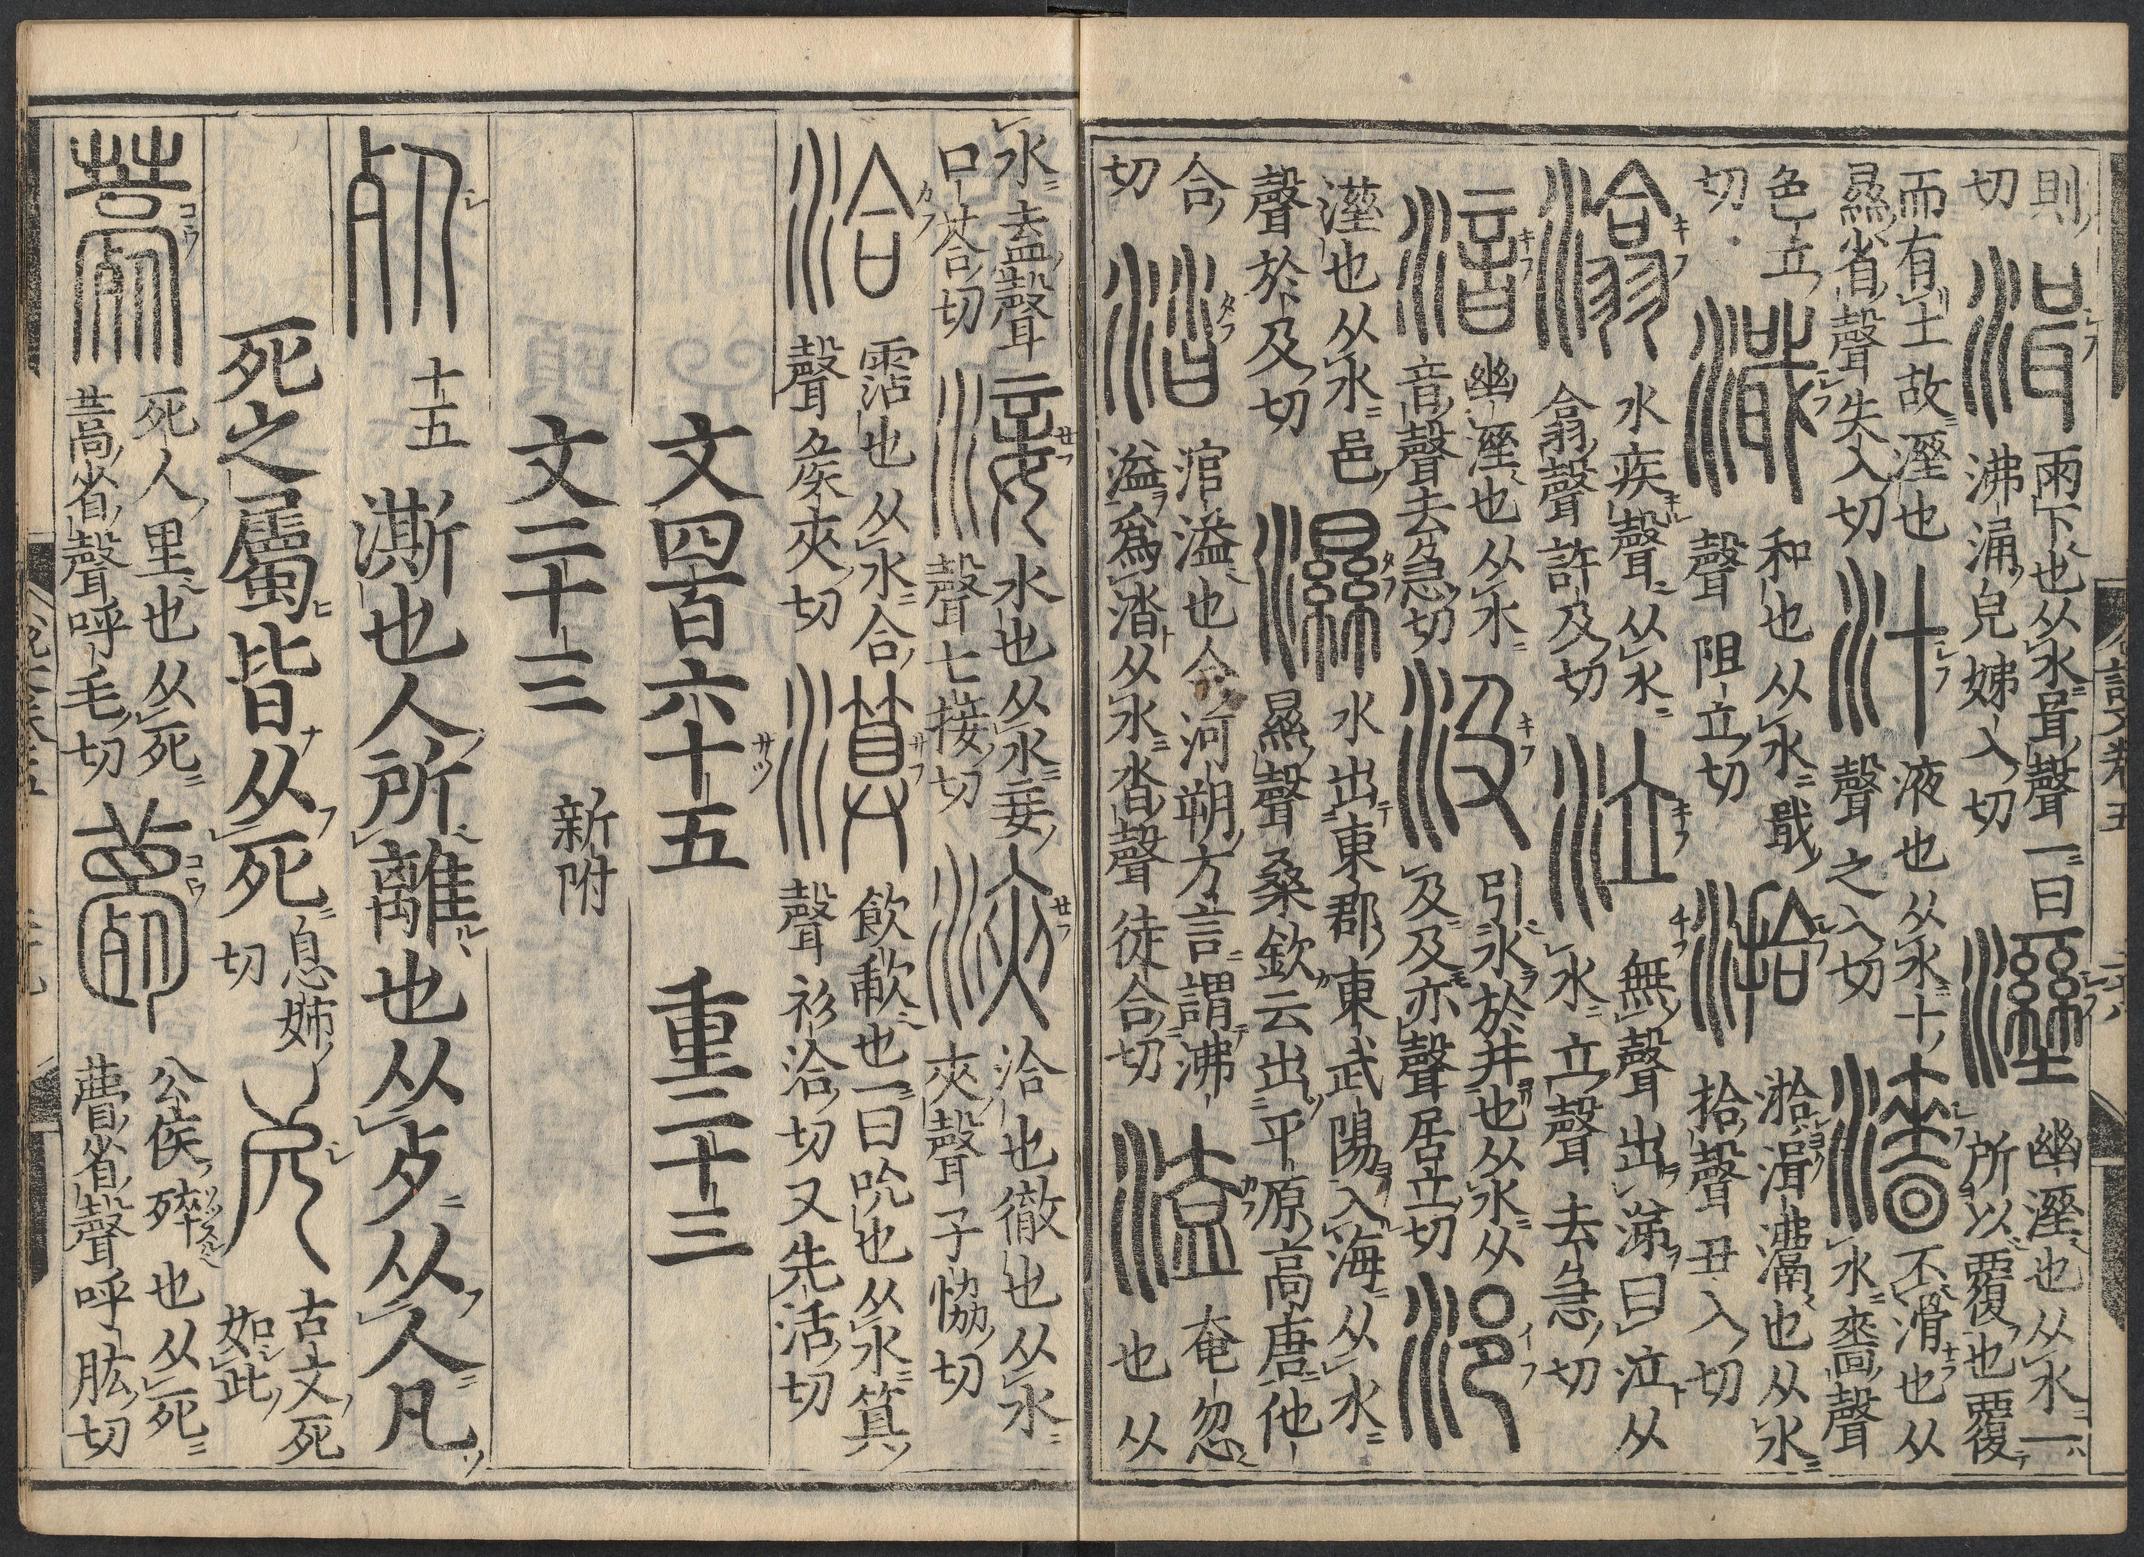 則切 湒 雨下也从水咠聲一曰沸涌皃姊入切 溼 幽溼也从水一所以覆也覆
而有土故溼也㬎省聲失入切 汁 液也从水十聲之入切 濇 不滑也从水嗇聲
色立切 濈 和也从水戢聲阻立切 湁 湁湒鬵也从水拾聲丑入切
潝 水疾聲从水翕聲許及切 泣 無聲出涕曰泣从水立聲去急切
湆 幽溼也从水音聲去急切 汲 引水於井也从水从及及亦聲居立切 浥
溼也从水邑聲於及切 濕 水出東郡東武陽入海从水㬎聲桑欽云出平原高唐他
合切 涾 涫溢也今河朔方言謂沸溢爲涾从水沓聲徒合切 溘 奄忽也从
水盍聲口荅切 淁 水也从水妾聲七接切 浹 洽也徹也从水夾聲子協切
洽 霑也从水合聲矦夾切 飲歃也一曰吮也从水箕聲衫洽切又先活切
文四百六十五 重二十三
文二十三 新附
死 十五 澌也人所離也从歺从人凡
死之屬皆从死 息姊切 古文死如此
薧 死人里也从死蒿省聲呼毛切 薨 公侯㱖也从死瞢省聲呼肱切